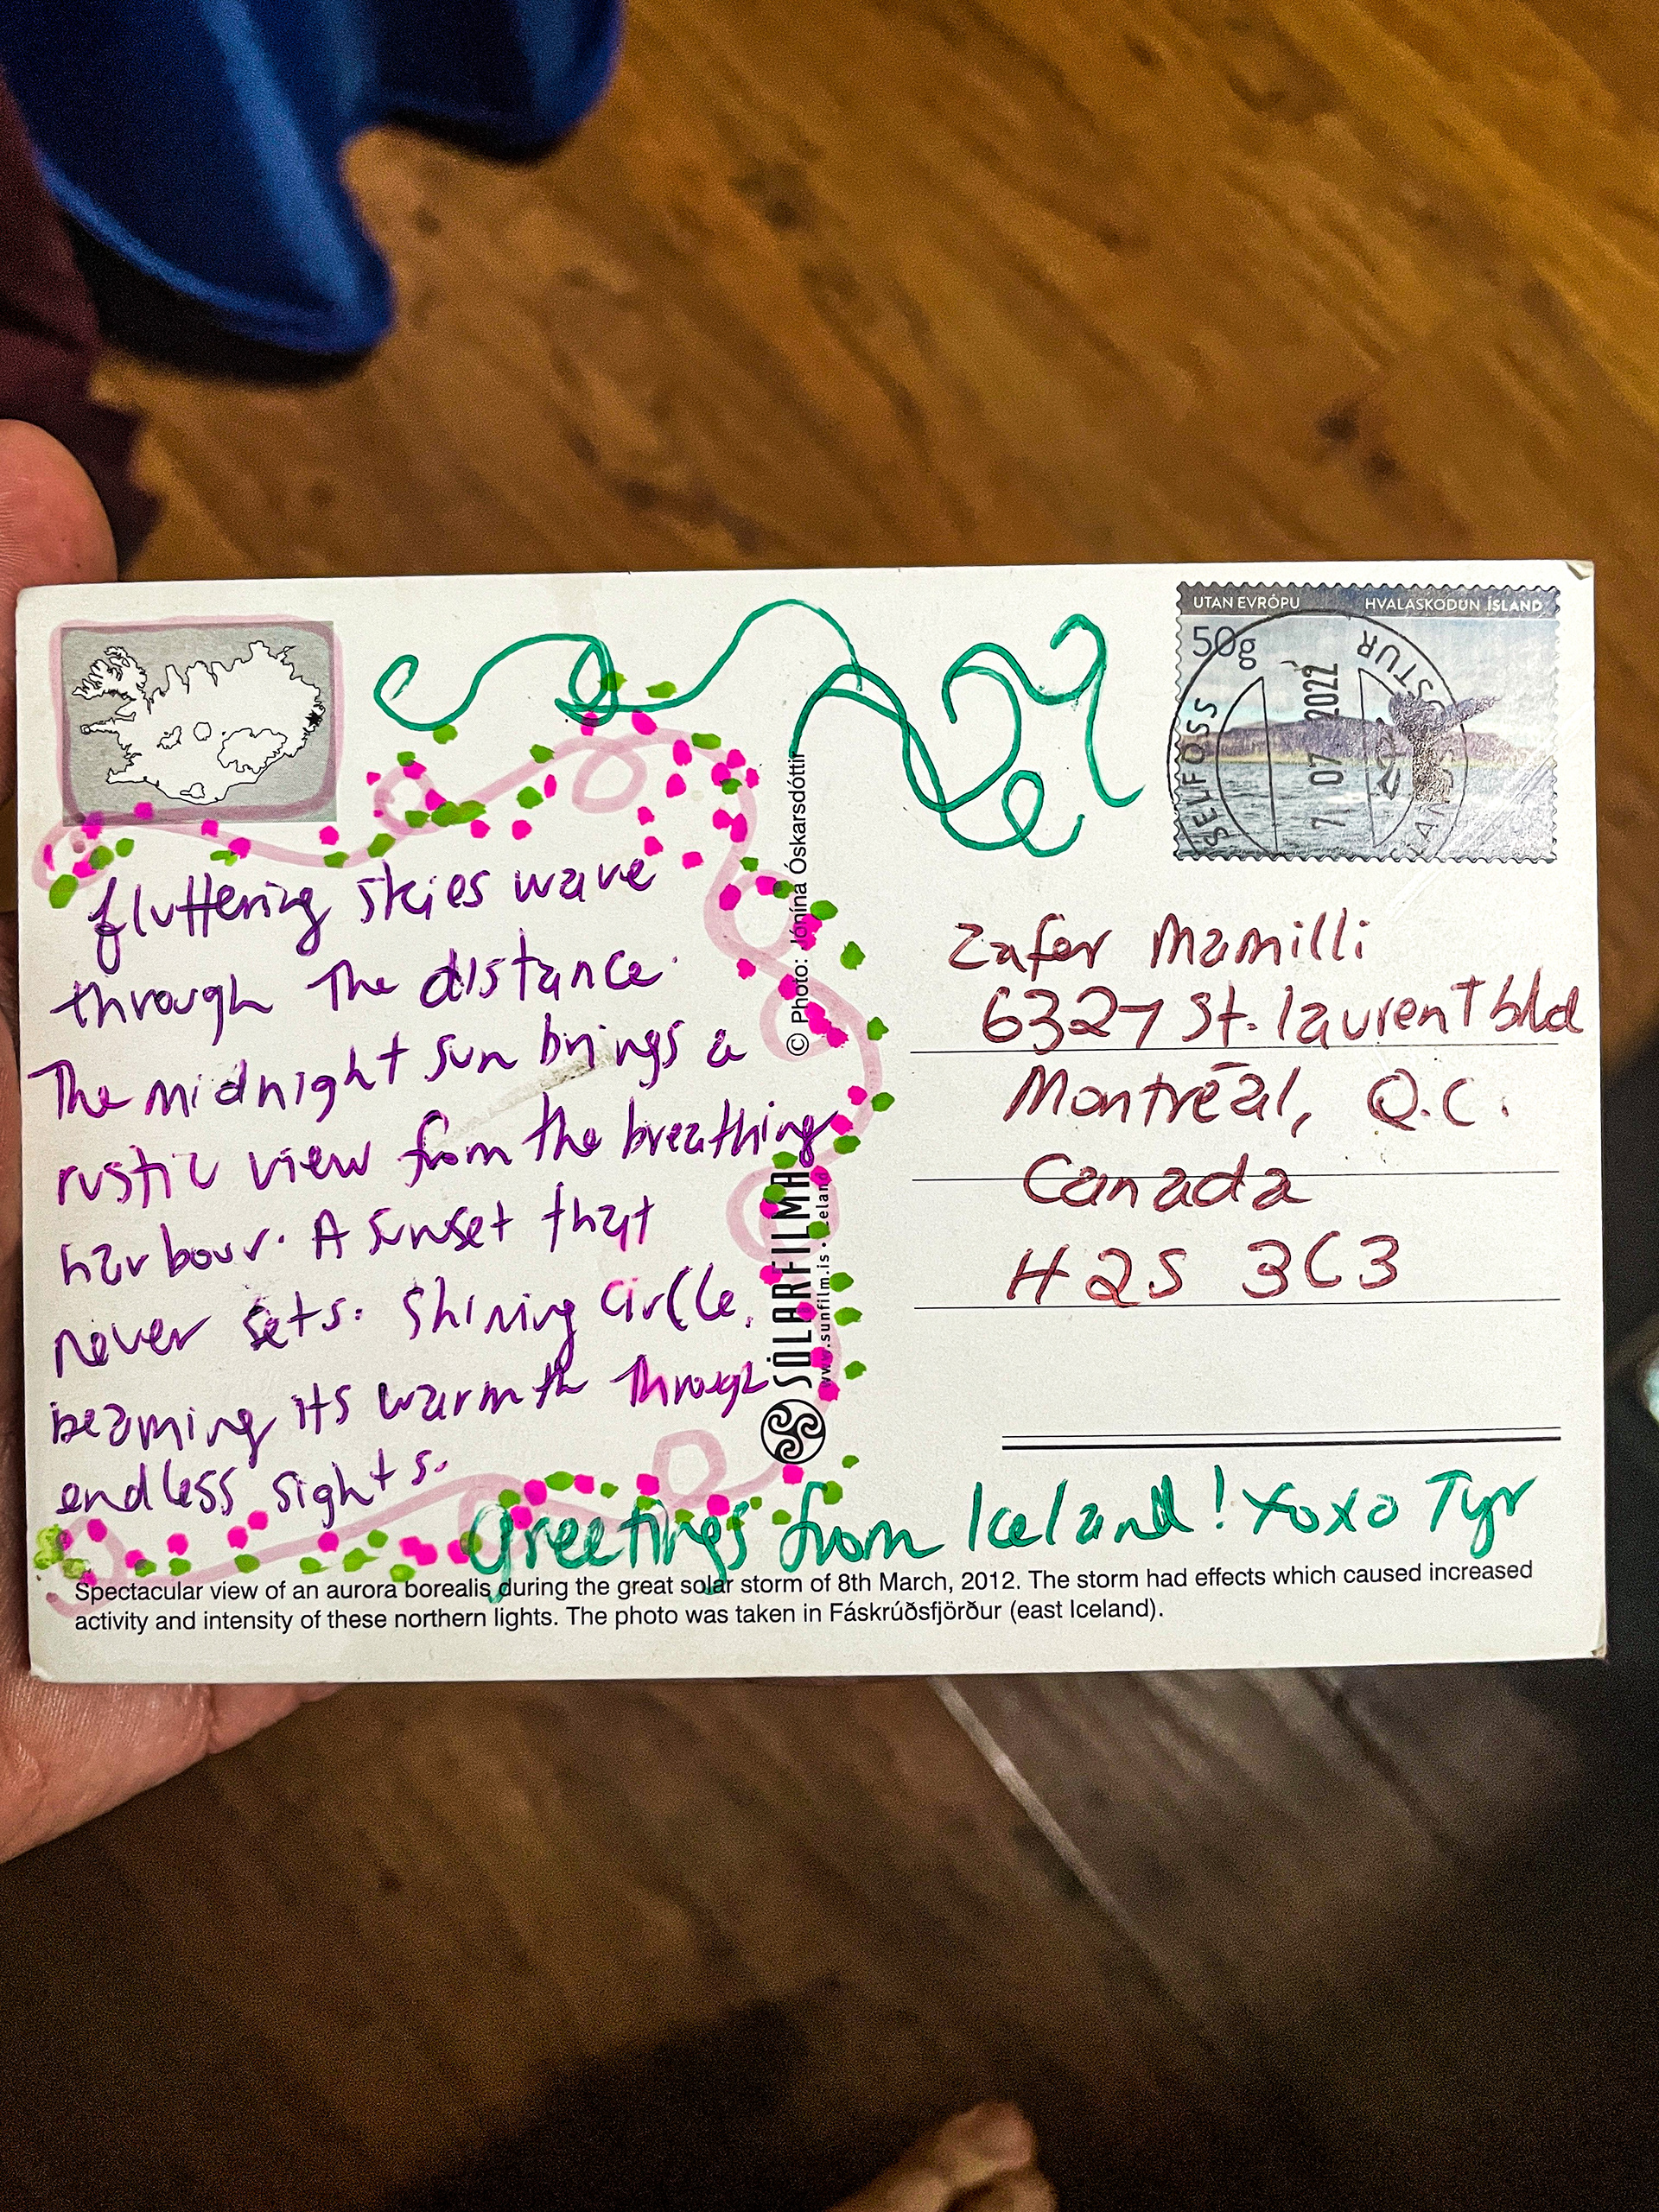 UTAN EVRÓPU HVALASKOÐUN ÍSLAND
50g
SELFOSS
7 07 2022
fluttering skies wave
through the distance.
The midnight sun brings a
rustic view from the breathing
harbour. A sunset that
never sets. Shining circle,
beaming its warmth through
endless sights.
© Photo: Jónína Óskarsdóttir
SÓLARFILMA
www.sunfilm.is
Zafer Mamilli
6327 St. laurent blvd
Montréal, Q.C.
Canada
H2S 3C3
Greetings from Iceland! xoxo Tyr
Spectacular view of an aurora borealis during the great solar storm of 8th March, 2012. The storm had effects which caused increased
activity and intensity of these northern lights. The photo was taken in Fáskrúðsfjörður (east Iceland).